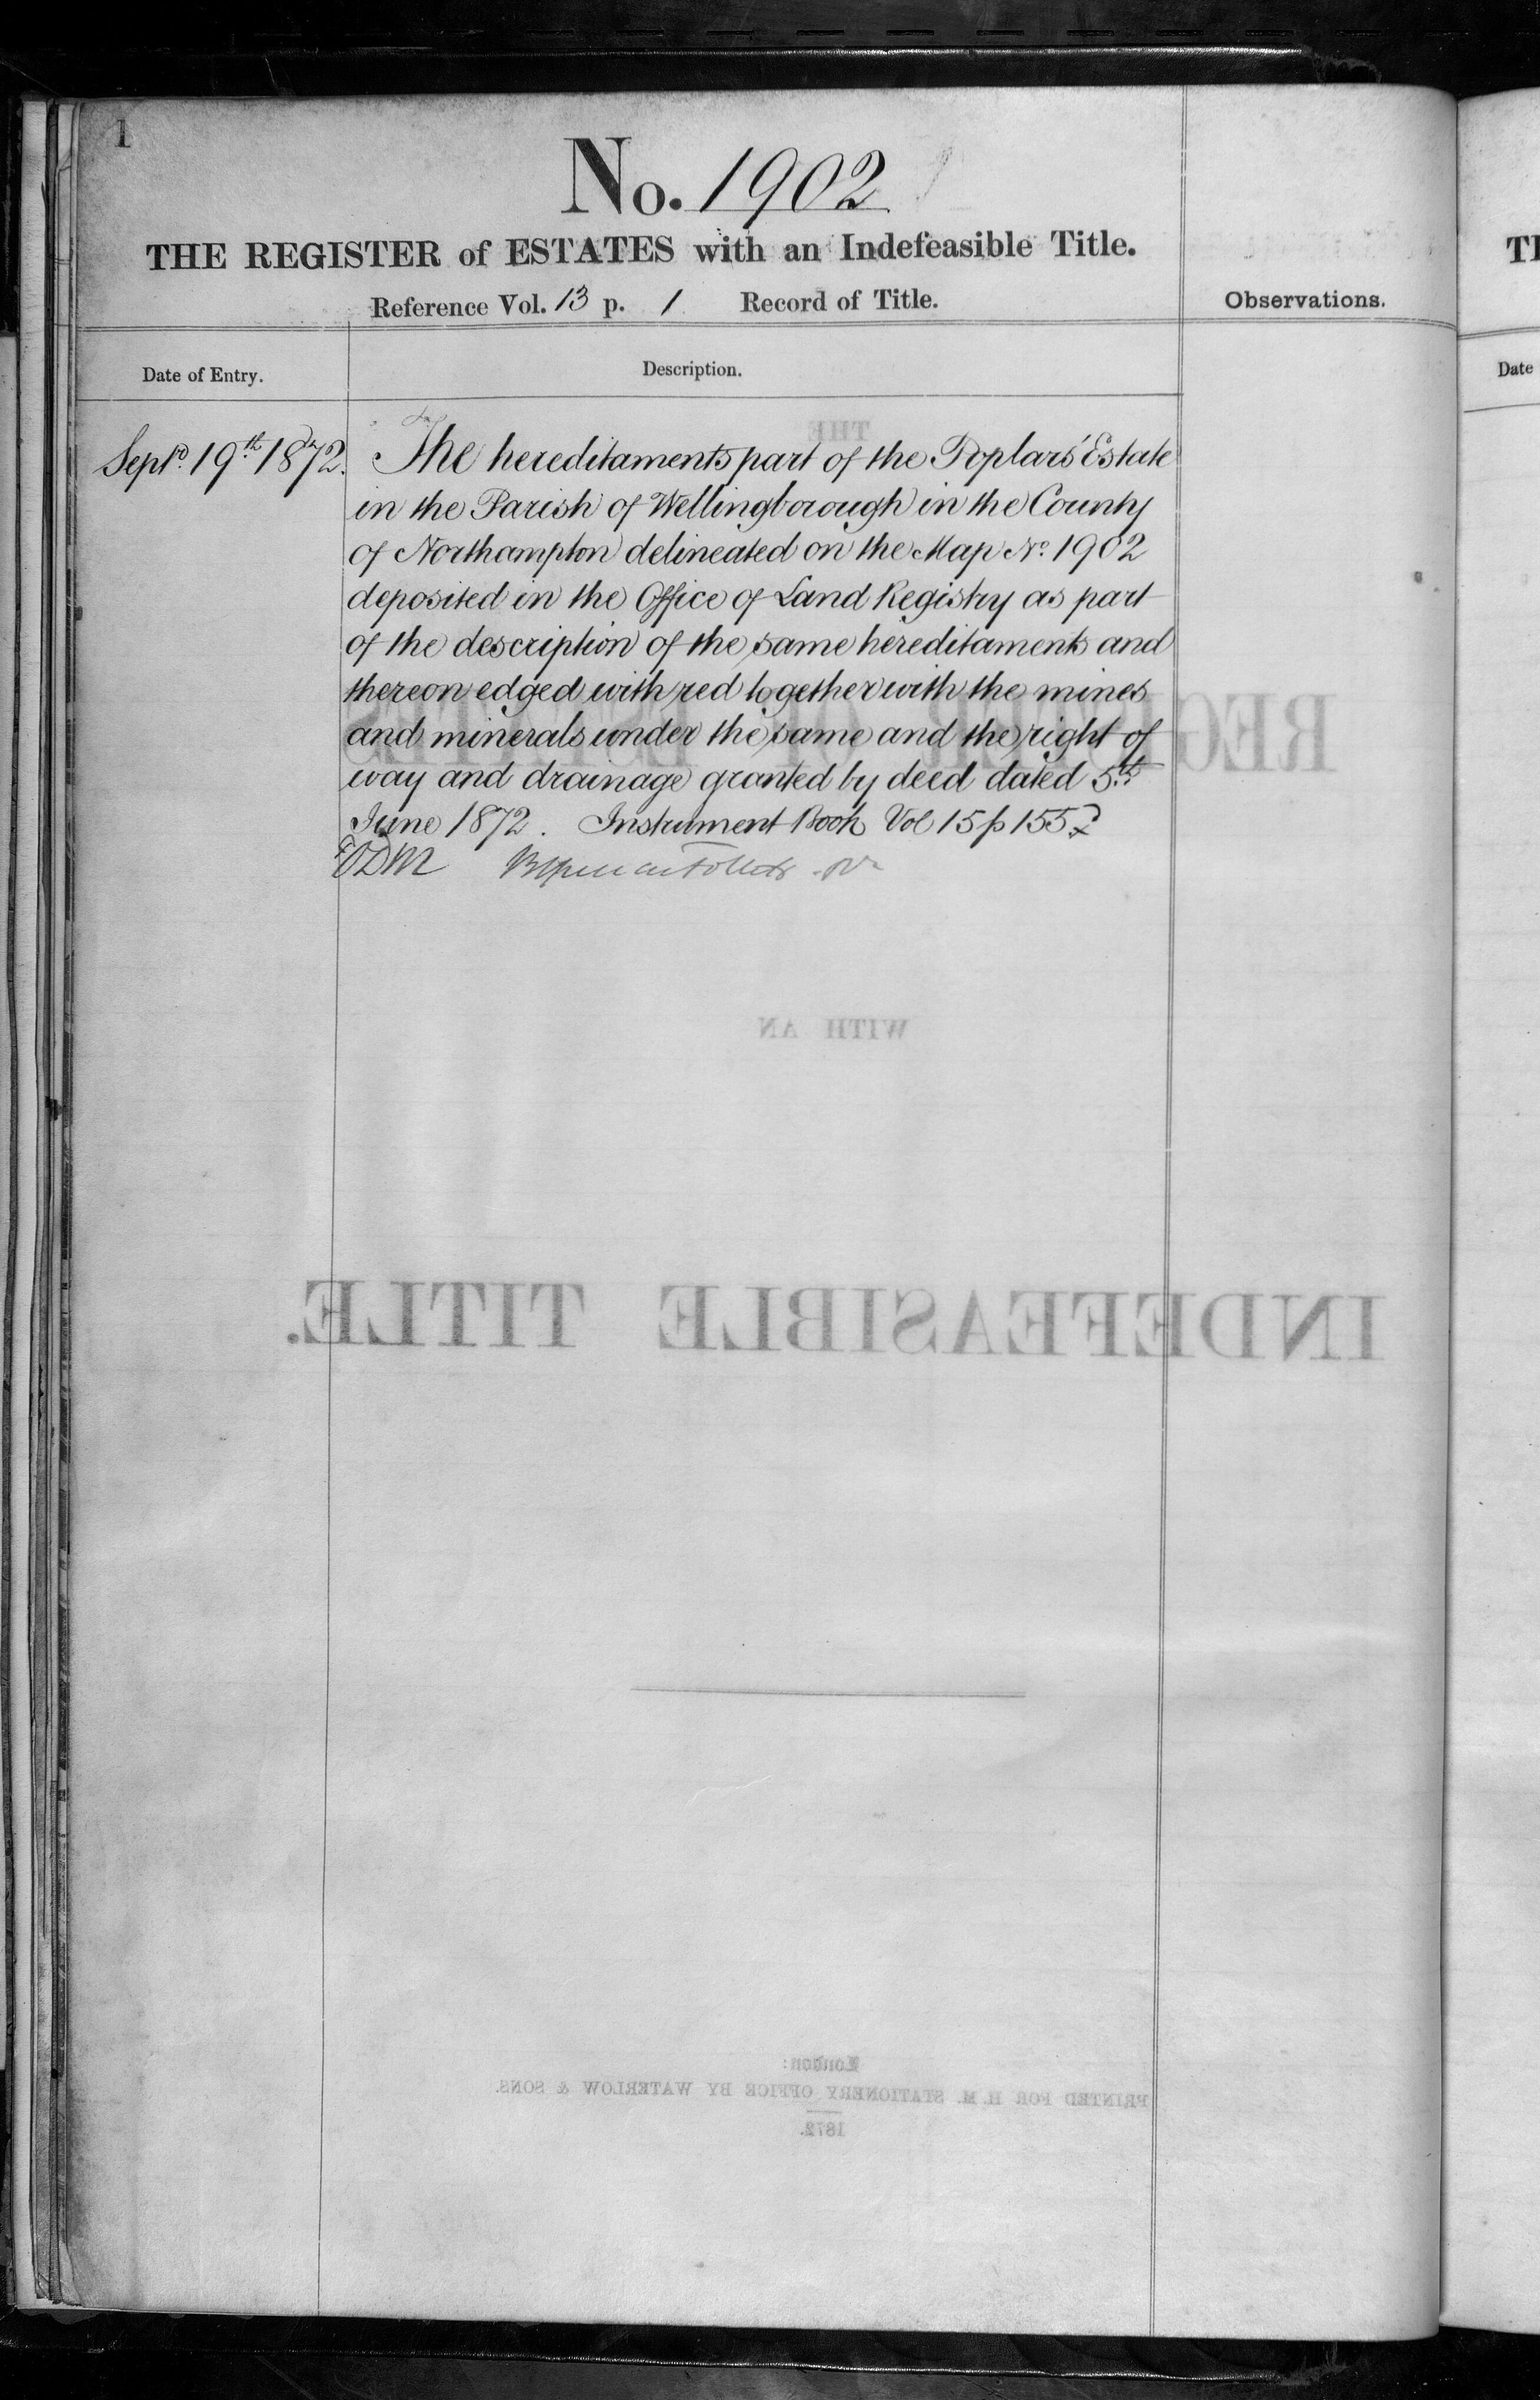 1
No. 1902
THE REGISTER of ESTATES with an Indefeasible Title.
Reference Vol. 13 p. 1 Record of Title.
Observations.
Date of Entry.
Description.
Septr. 19th 1872.
The hereditaments part of the Poplars' Estate
in the Parish of Wellingborough in the County
of Northampton delineated on the Map No. 1902
deposited in the Office of Land Registry as part
of the description of the same hereditaments and
thereon edged with red together with the mines
and minerals under the same and the right of
way and drainage granted by deed dated 5th
June 1872. Instrument Book Vol 15 p 155
THE
REGISTER OF ESTATES
WITH AN
INDEFEASIBLE TITLE.
London:
PRINTED FOR H. M. STATIONERY OFFICE BY WATERLOW & SONS.
1872.
Date